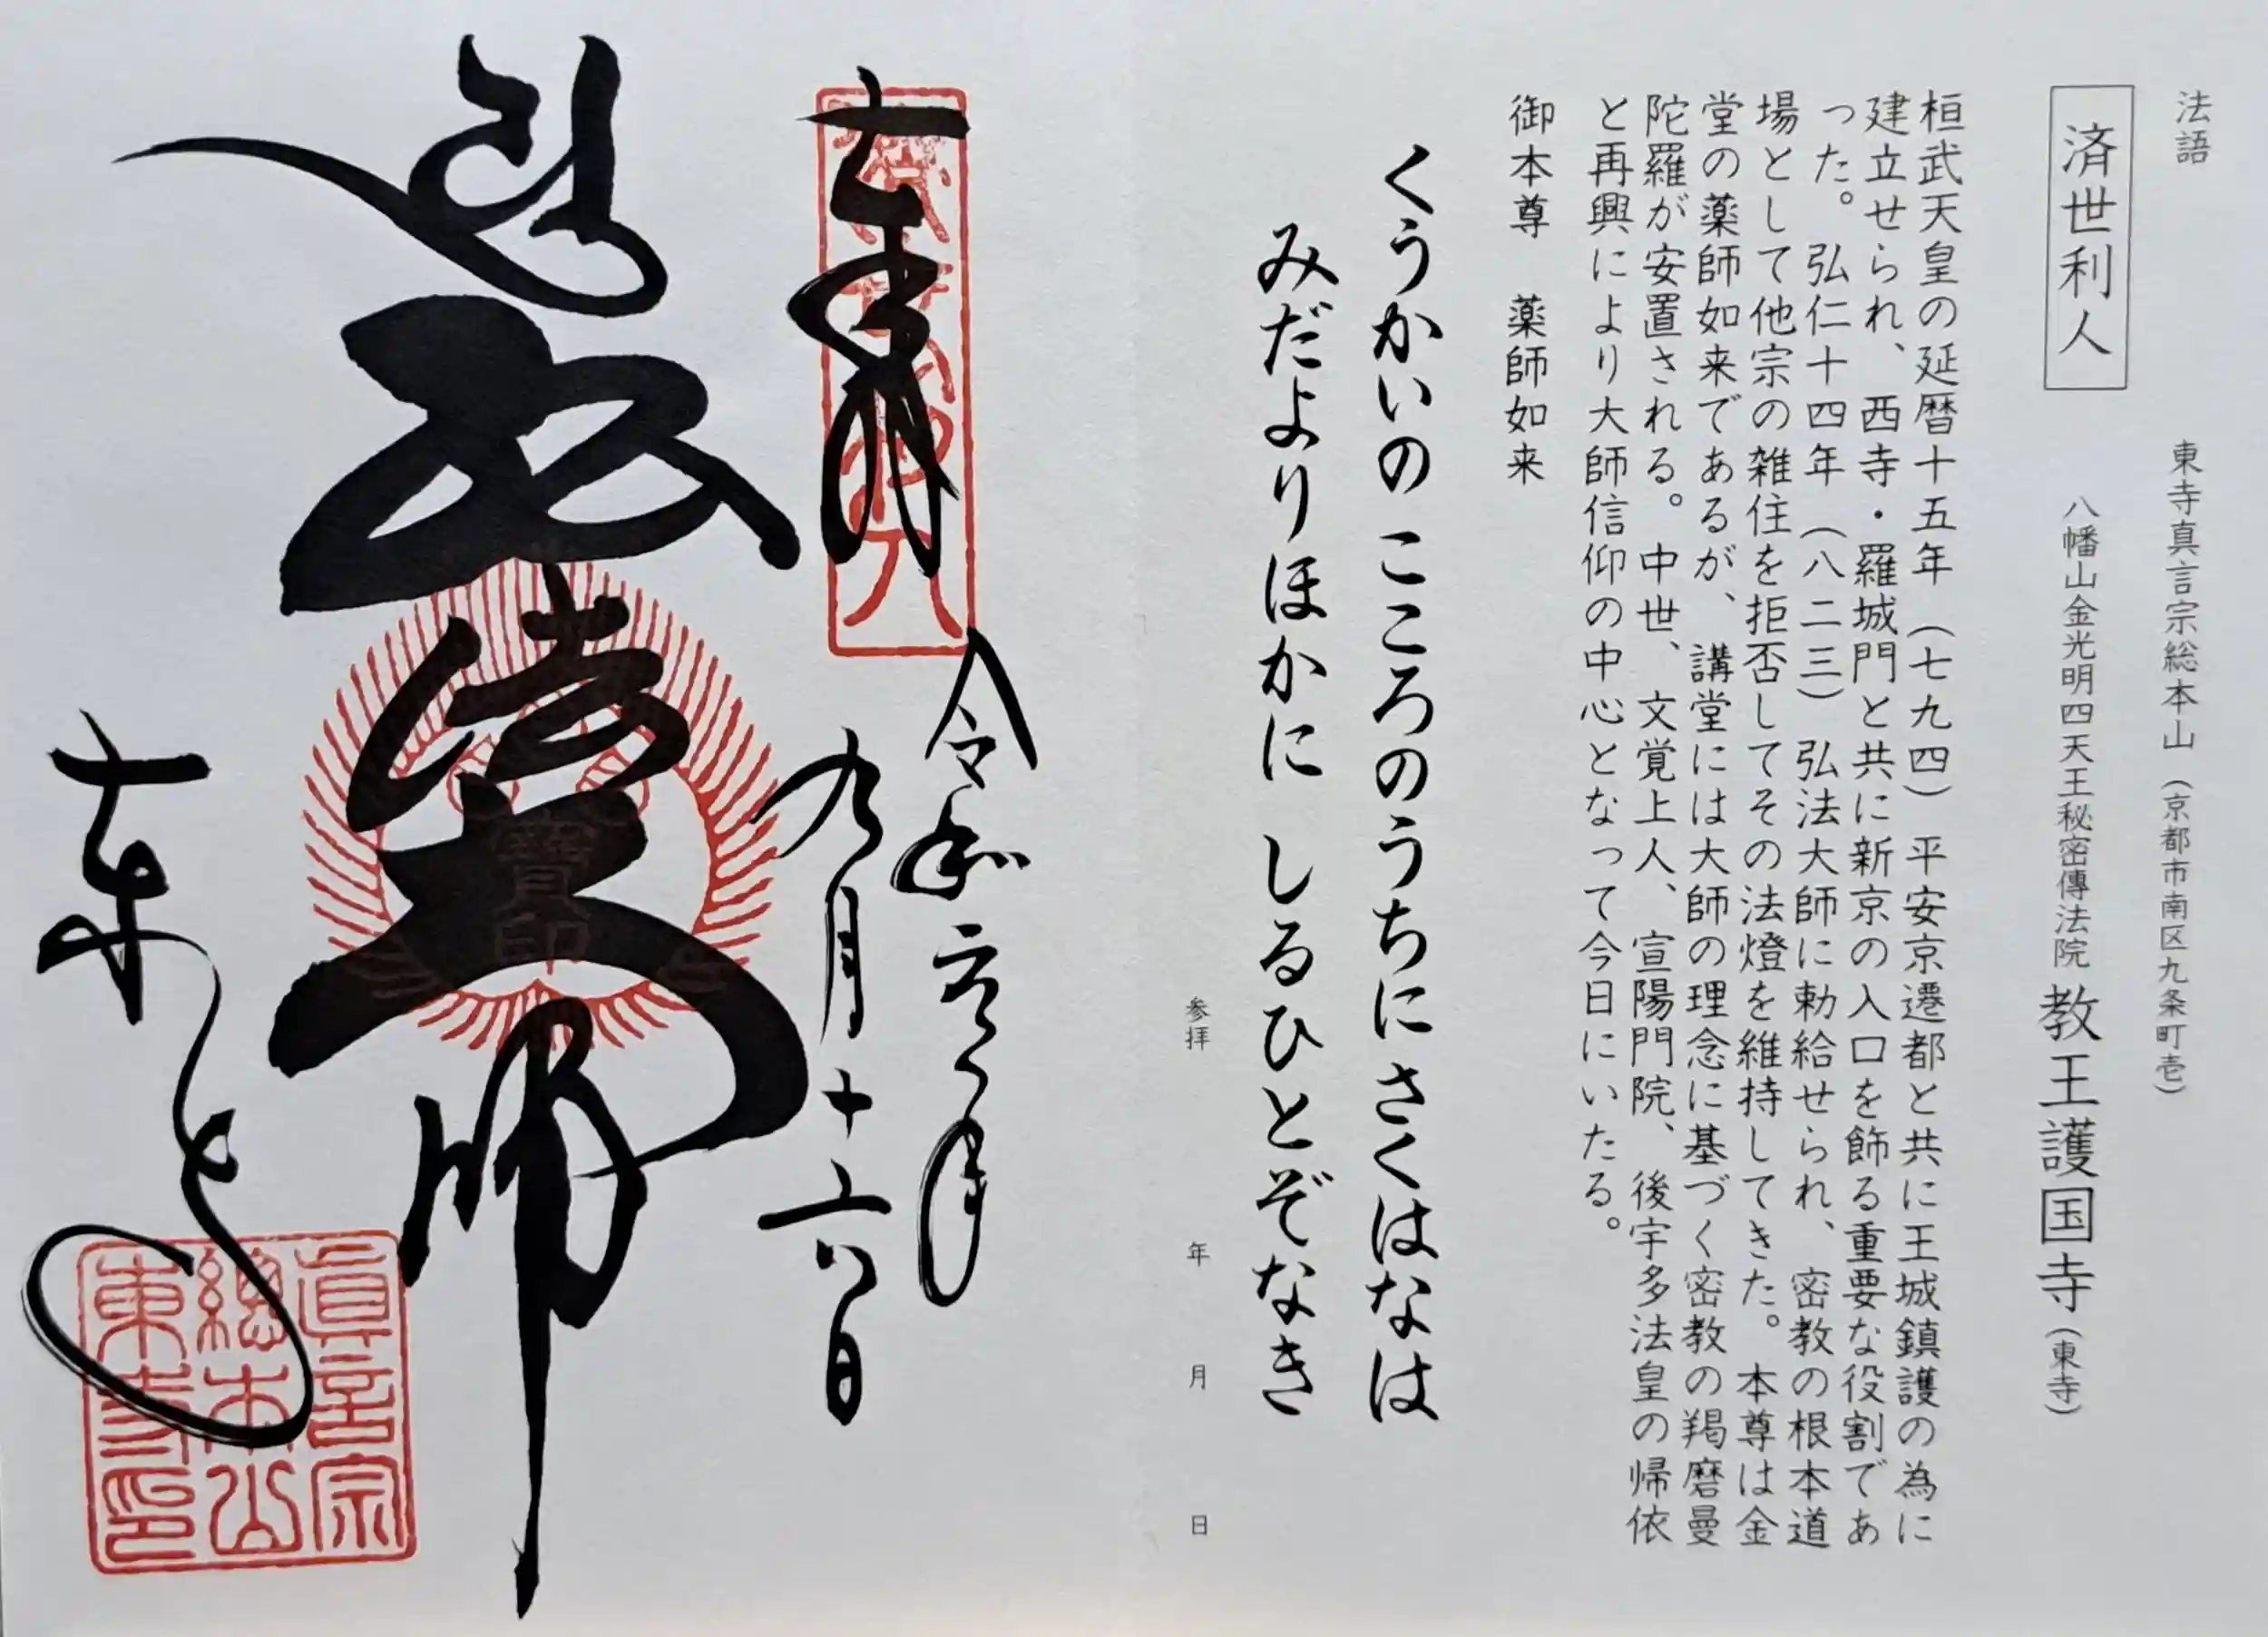 法語
済世利人
東寺真言宗総本山(京都市南区九条町壱)
八幡山金光明四天王秘密傳法院 教王護国寺(東寺)
桓武天皇の延暦十五年(七九四)平安京遷都と共に王城鎮護の為に
建立せられ、西寺・羅城門と共に新京の入口を飾る重要な役割であ
った。弘仁十四年(八二三)弘法大師に勅給せられ、密教の根本道
場として他宗の雑住を拒否してその法燈を維持してきた。本尊は金
堂の薬師如来であるが、講堂には大師の理念に基づく密教の羯磨曼
陀羅が安置される。中世、文覚上人、宣陽門院、後宇多法皇の帰依
と再興により大師信仰の中心となって今日にいたる。
御本尊 薬師如来
くうかいの こころのうちにさくはなは
みだよりほかに しるひとぞなき
参拝 年 月 日
令和六年
九月十六日
奉拝
弘法大師
東寺
寶印
真言宗
總本山
東寺印